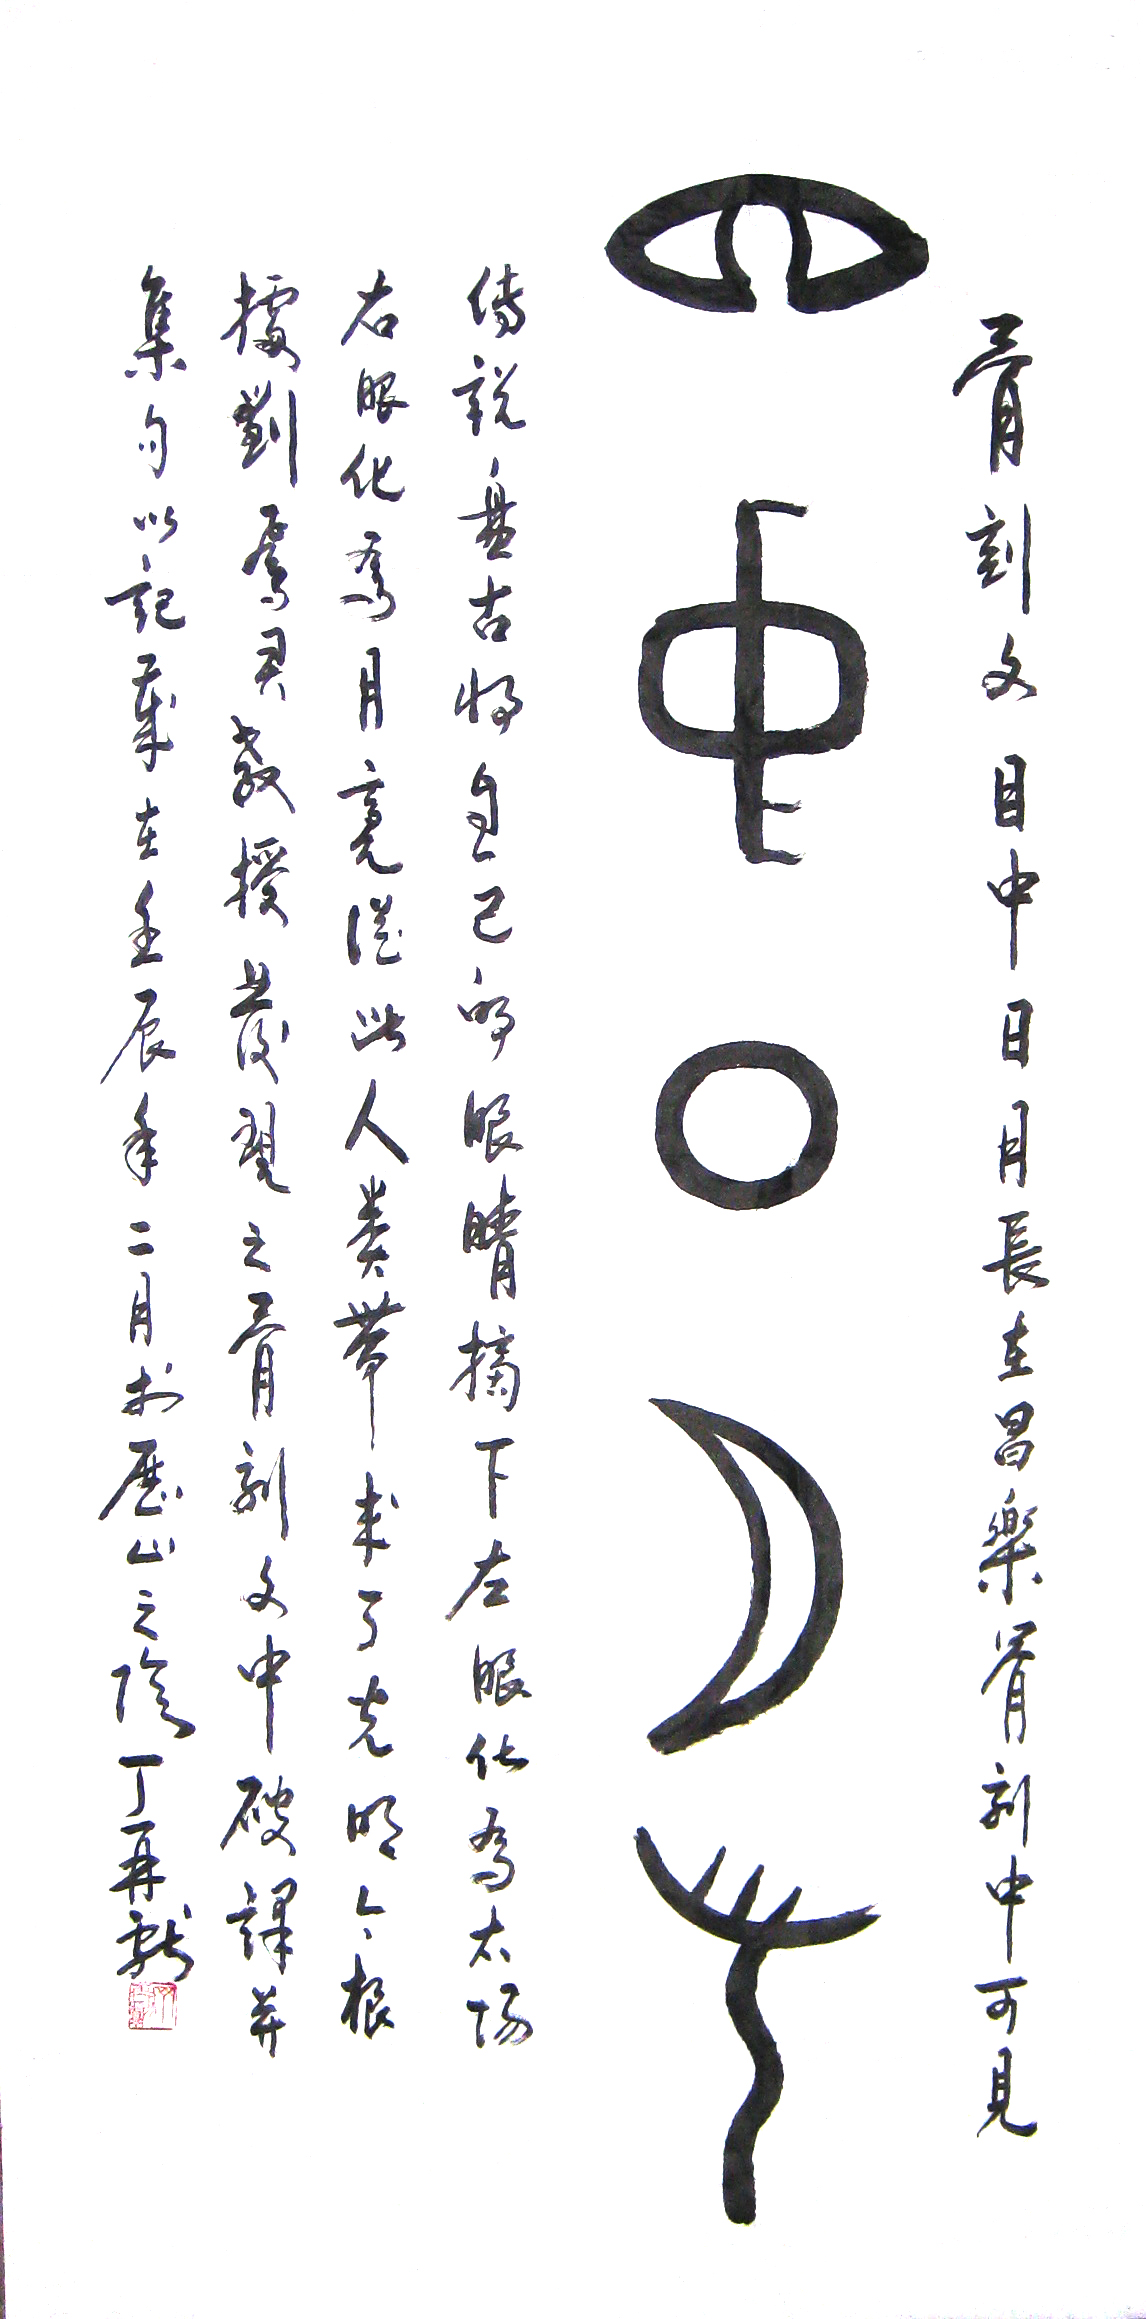 骨刻文 目中日月長 在昌樂骨刻中可見
目中日月長
傳説盘古將自己的眼睛摘下左眼化為太陽
右眼化為月亮從此人类帶來了光明今根
據劉鳳君教授發現之骨刻文中破譯并
集句以記歲在壬辰年二月於歷山之陰丁再献